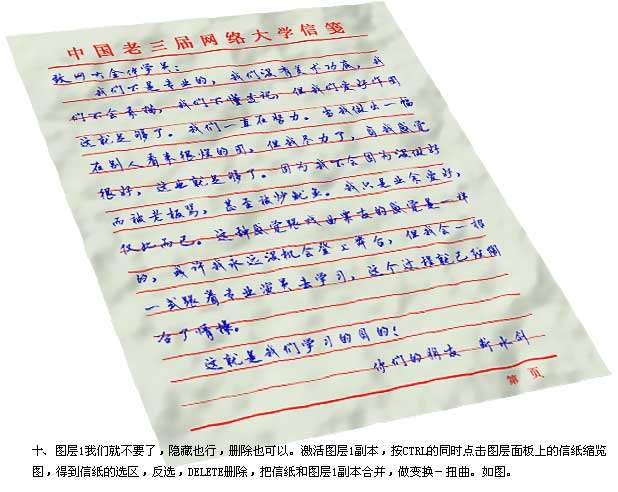 中国老三届网络大学信笺
致网大全体学员：
我们不是专业的，我们没有美术功底，我
们不会素描，我们不懂速记，但我们爱好作图
这就足够了。我们一直在努力。当我做出一幅
在别人看来很烂的图，但我尽力了，自我感觉
很好，这也就足够了。因为我不会因为没做好
而被老板骂，甚至被炒鱿鱼。我只是业余爱好，
仅此而已。这种感觉跟戏曲票友的感觉是一样
的，或许我永远没机会登上舞台，但我会一招
一式跟着专业演员去学习，这个过程就已经
合了情操。
这就是我们学习的目的！
你们的朋友 靳水剑
第 页
十、图层1我们就不要了，隐藏也行，删除也可以。激活图层1副本，按CTRL的同时点击图层面板上的信纸缩览
图，得到信纸的选区，反选，DELETE删除，把信纸和图层1副本合并，做变换－扭曲。如图。